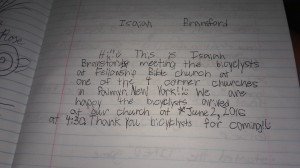 Isaiah Bransford
Hi!!! This is Isaiah
meeting the bicyclysts
at Fellowship Bible church at
one of the 4 corner churches
in Palmyra New York!!! We are
happy the bicyclists arrived
at our church at *June 2, 2016
at 4:30. Thank you bicyclists for coming!!